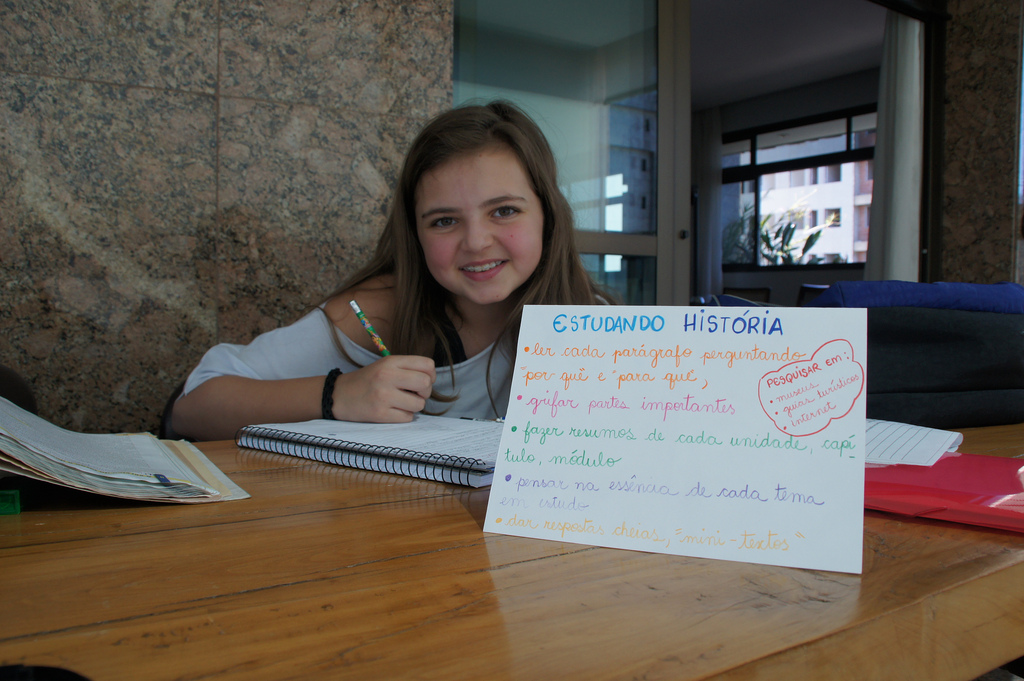 ESTUDANDO HISTÓRIA
• ler cada parágrafo perguntando
"por quê e "para quê",
• grifar partes importantes
• fazer resumos de cada unidade, capí-
tulo, módulo
• pensar na essência de cada tema
em estudo
• dar respostas cheias, "mini-textos"
PESQUISAR EM:
• museus
• guias turísticos
• internet